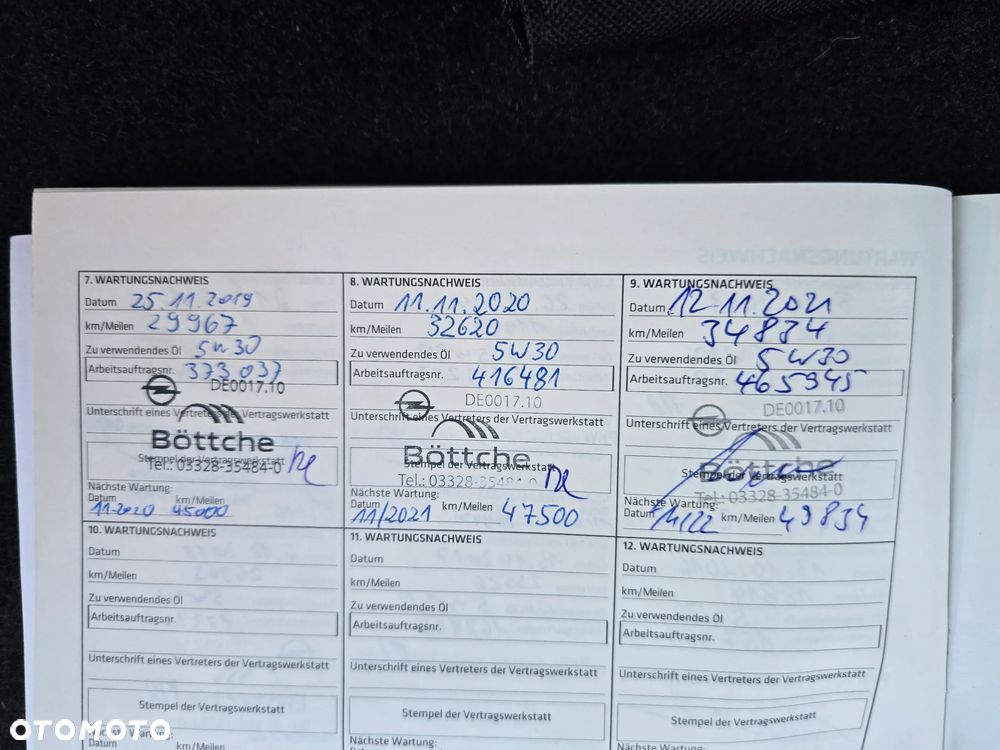 7. WARTUNGSNACHWEIS
Datum 25.11.2019
km/Meilen 29967
Zu verwendendes Öl 5w30
Arbeitsauftragsnr. 373037
DE0017.10
Unterschrift eines Vertreters der Vertragswerkstatt
Böttche
Stempel der Vertragswerkstatt
Tel.: 03328-35484-0
Nächste Wartung:
Datum km/Meilen
11.2020 45000
8. WARTUNGSNACHWEIS
Datum 11.11.2020
km/Meilen 32620
Zu verwendendes Öl 5W30
Arbeitsauftragsnr. 416481
DE0017.10
Unterschrift eines Vertreters der Vertragswerkstatt
Böttche
Stempel der Vertragswerkstatt
Tel.: 03328-35484-0
Nächste Wartung:
Datum km/Meilen
11/2021 47500
9. WARTUNGSNACHWEIS
Datum 12.11.2021
km/Meilen 34834
Zu verwendendes Öl 5W30
Arbeitsauftragsnr. 465945
DE0017.10
Unterschrift eines Vertreters der Vertragswerkstatt
Böttche
Stempel der Vertragswerkstatt
Tel.: 03328-35484-0
Nächste Wartung:
Datum km/Meilen 49834
10. WARTUNGSNACHWEIS
Datum
km/Meilen
Zu verwendendes Öl
Arbeitsauftragsnr.
Unterschrift eines Vertreters der Vertragswerkstatt
Stempel der Vertragswerkstatt
Nächste Wartung:
Datum km/Meilen
11. WARTUNGSNACHWEIS
Datum
km/Meilen
Zu verwendendes Öl
Arbeitsauftragsnr.
Unterschrift eines Vertreters der Vertragswerkstatt
Stempel der Vertragswerkstatt
Nächste Wartung:
12. WARTUNGSNACHWEIS
Datum
km/Meilen
Zu verwendendes Öl
Arbeitsauftragsnr.
Unterschrift eines Vertreters der Vertragswerkstatt
Stempel der Vertragswerkstatt
Nächste Wartung:
OTOMOTO